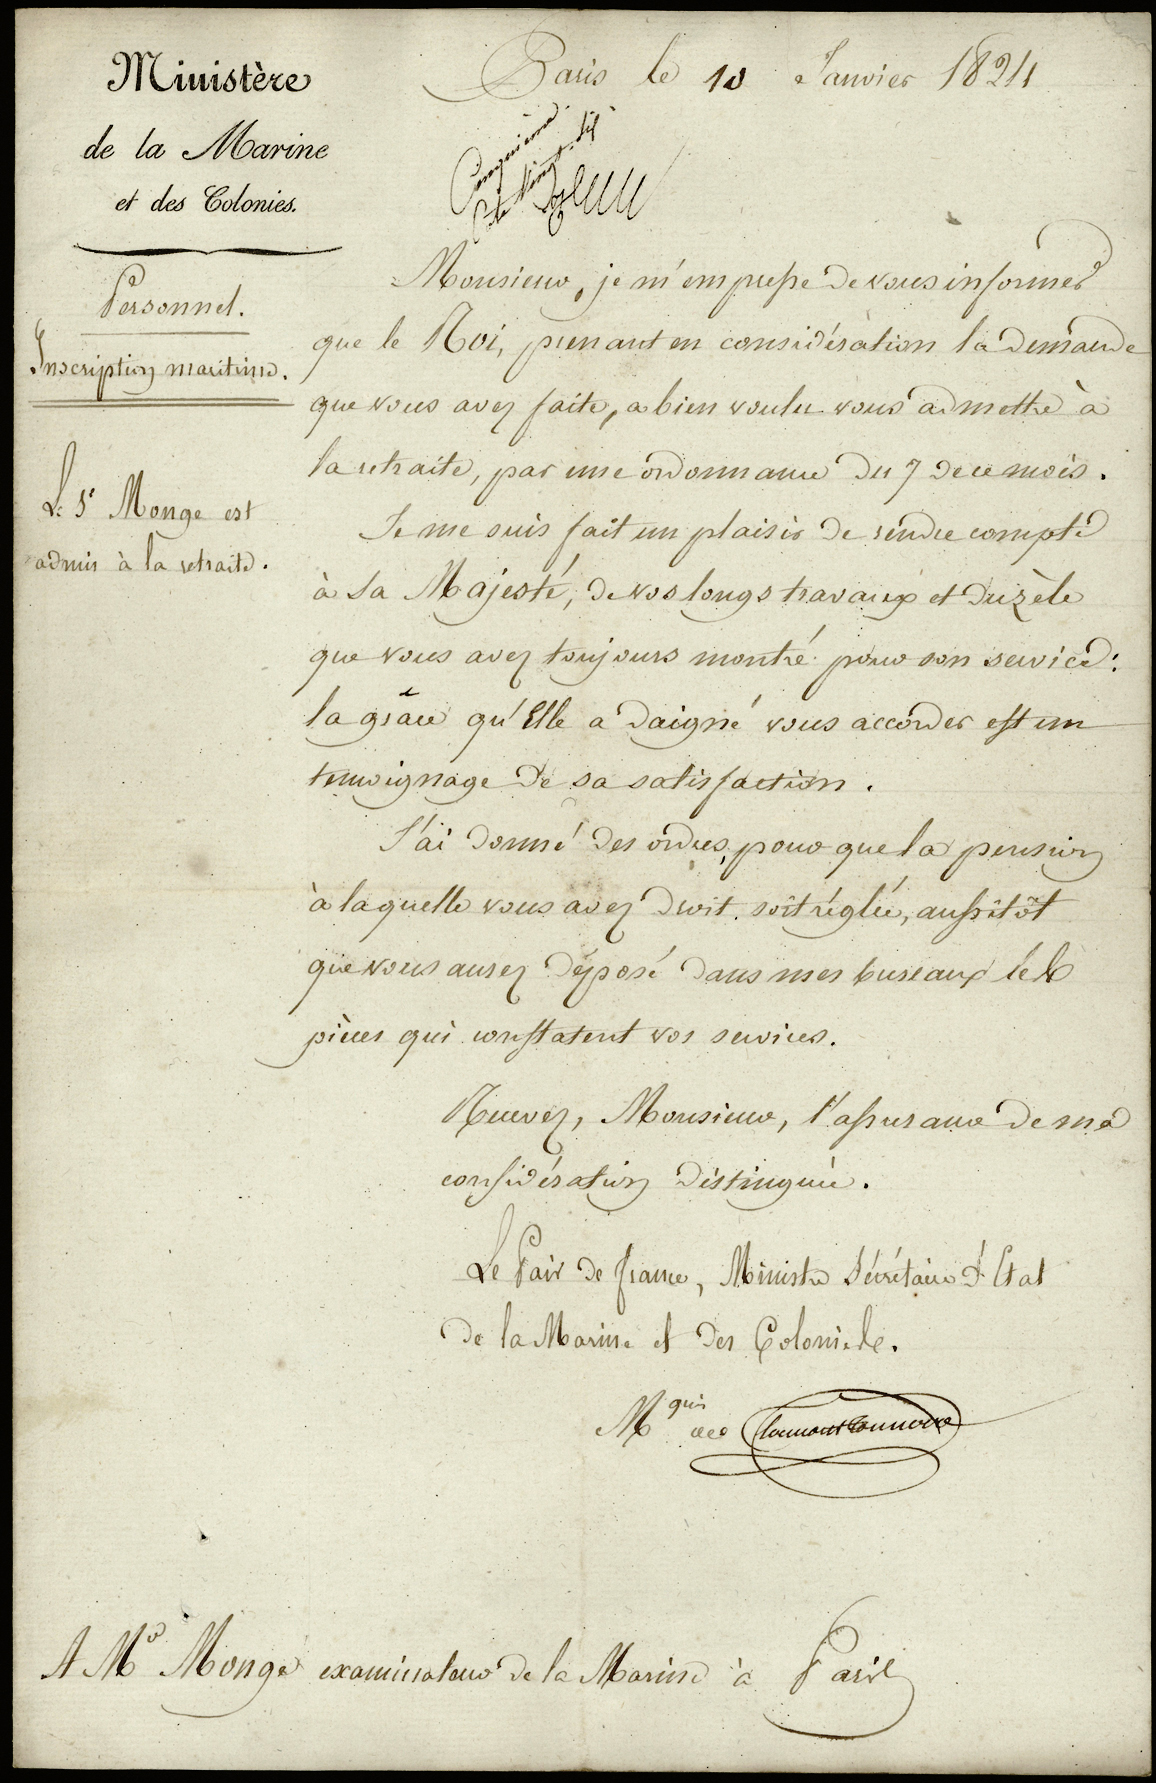 Ministère
de la Marine
et des Colonies.
Paris le 10 Janvier 1824
Personnel.
Inscription maritime.
Le Sr Monge est
admis à la retraite.
Monsieur, je m'empresse de vous informer
que le Roi, prenant en considération la demande
que vous avez faite, a bien voulu vous admettre à
la retraite, par une ordonnance du 7 de ce mois.
Je me suis fait un plaisir de rendre compte
à Sa Majesté, de vos longs travaux et du zèle
que vous avez toujours montré pour son service:
la grâce qu'Elle a daigné vous accorder est un
témoignage de sa satisfaction.
J'ai donné des ordres, pour que la pension
à laquelle vous avez droit soit réglée, aussitôt
que vous aurez déposé dans mes bureaux les
pièces qui constatent vos services.
Recevez, Monsieur, l'assurance de ma
considération distinguée.
Le Pair de france, Ministre Sécrétaire d'Etat
de la Marine et des Colonies.
Mquis de Clermont Tonnerre
A Mr Monge examinateur de la Marine à Paris